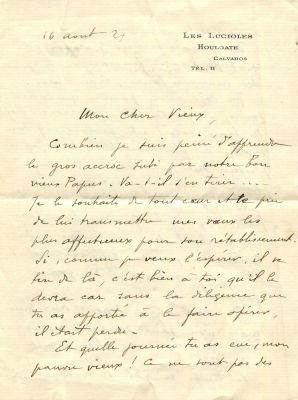 16 août 21
LES LUCIOLES
HOULGATE
CALVADOS
TÉL. 11
Mon cher Vieux,
Combien je suis peiné d'apprendre
le gros accroc subi par notre bon
vieux Papus. Va-t-il s'en tirer ....
Je le souhaite de tout cœur et te prie
de lui transmettre mes vœux les
plus affectueux pour son rétablissement.
Si, comme je veux l'espérer, il se
tire de là, c'est bien à toi qu'il le
devra car sans la diligence que
tu as apportée à le faire opérer,
il était perdu.
Et quelle journée tu as eue, mon
pauvre vieux ! Ce ne sont pas des